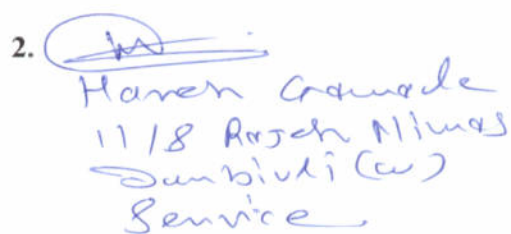 2.
Haresh Gamade
11/8 Rajesh Niwas
Dombivli (W)
Service